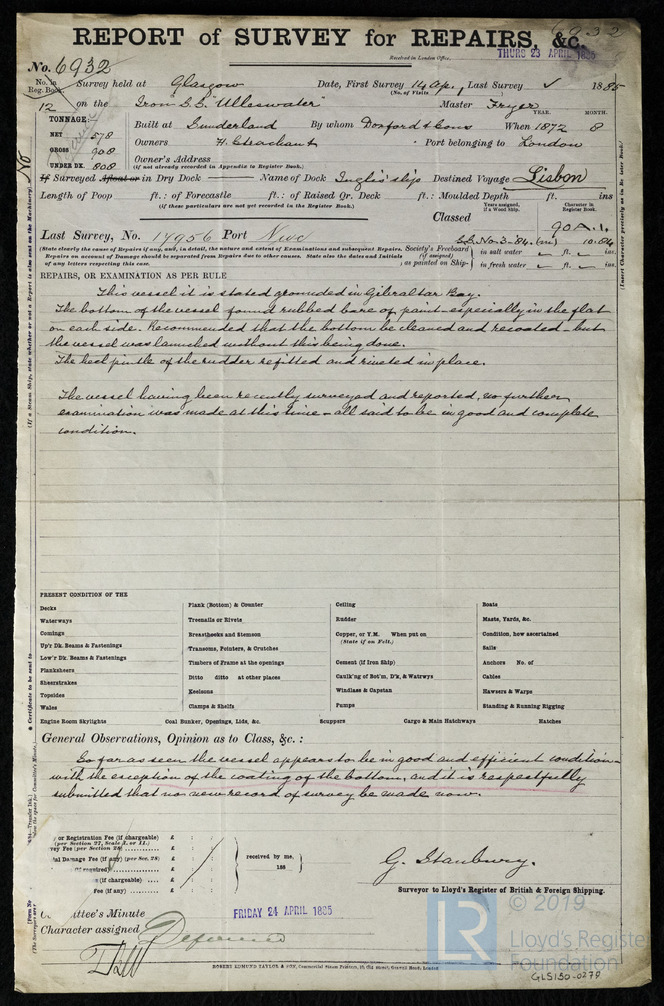 6932
REPORT of SURVEY for REPAIRS, &c.
Received in London Office, THURS 23 APRIL 1885
No. 6932
No. in Reg. Book. Survey held at Glasgow Date, First Survey 14 Ap., Last Survey ✓ 1885
(No. of Visits )
12 on the Iron S.S. "Ulleswater" Master Fryer
TONNAGE: YEAR. MONTH.
NET 578 Built at Sunderland By whom Doxford & Sons When 1872 8
GROSS 908 Owners Port belonging to London
UNDER DK. 808 Owner's Address
(if not already recorded in Appendix to Register Book.)
If Surveyed Afloat or in Dry Dock Name of Dock Inglis' slip Destined Voyage Lisbon
Length of Poop ft.: of Forecastle ft.: of Raised Qr. Deck ft.: Moulded Depth ft. ins
(if these particulars are not yet recorded in the Register Book.) Years assigned, if a Wood Ship. Character in Register Book.
Classed 90 A.1.
Last Survey, No. 14956 Port Newc S.S. No. 3-84. (m) 10.84
(State clearly the cause of Repairs if any, and, in detail, the nature and extent of Examinations and subsequent Repairs. Society's Freeboard in salt water ft. ins.
Repairs on account of Damage should be separated from Repairs due to other causes. State also the dates and Initials (if assigned)
of any letters respecting this case. as painted on Ship- in fresh water ft. ins.
REPAIRS, OR EXAMINATION AS PER RULE
This vessel it is stated grounded in Gibraltar Bay.
The bottom of the vessel found rubbed bare of paint especially in the flat
on each side. Recommended that the bottom be cleaned and recoated - but
the vessel was launched without this being done.
The heel pintle of the rudder refitted and riveted in place.
The vessel having been recently surveyed and reported, no further
examination was made at this time - all said to be in good and complete
condition.
PRESENT CONDITION OF THE
Decks
Waterways
Comings
Up'r Dk. Beams & Fastenings
Low'r Dk. Beams & Fastenings
Planksheers
Sheerstrakes
Topsides
Wales
Engine Room Skylights
Plank (Bottom) & Counter
Treenails or Rivets
Breasthooks and Stemson
Transoms, Pointers, & Crutches
Timbers of Frame at the openings
Ditto ditto at other places
Keelsons
Clamps & Shelfs
Coal Bunker, Openings, Lids, &c.
Ceiling
Rudder
Copper, or Y.M. When put on
(State if on Felt.)
Cement (if Iron Ship)
Caulk'ng of Bot'm, D'k, & Watrwys
Windlass & Capstan
Pumps
Scuppers
Cargo & Main Hatchways
Boats
Masts, Yards, &c.
Condition, how ascertained
Sails
Anchors No. of
Cables
Hawsers & Warps
Standing & Running Rigging
Hatches
General Observations, Opinion as to Class, &c. :
So far as seen the vessel appears to be in good and efficient condition-
with the exception of the coating of the bottom, and it is respectfully
submitted that no new record of survey be made now.
or Registration Fee (if chargeable) £ : :
(per Section 27, Scale I. or II.)
vey Fee (per Section 28) £ : :
Damage Fee (if any) (per Sec. 28) £ : : received by me,
(if required) £ : : 188
(if chargeable) £ : :
Fee (if any) £ : :
G. Stanbury.
Surveyor to Lloyd's Register of British & Foreign Shipping.
Committee's Minute FRIDAY 24 APRIL 1885
Character assigned Deferred
ROBERT EDMUND TAYLOR & SON, Commercial Steam Printers, 19, Old Street, Goswell Road, London
LR
© 2019
Lloyd's Register
Foundation
GLS130-0279